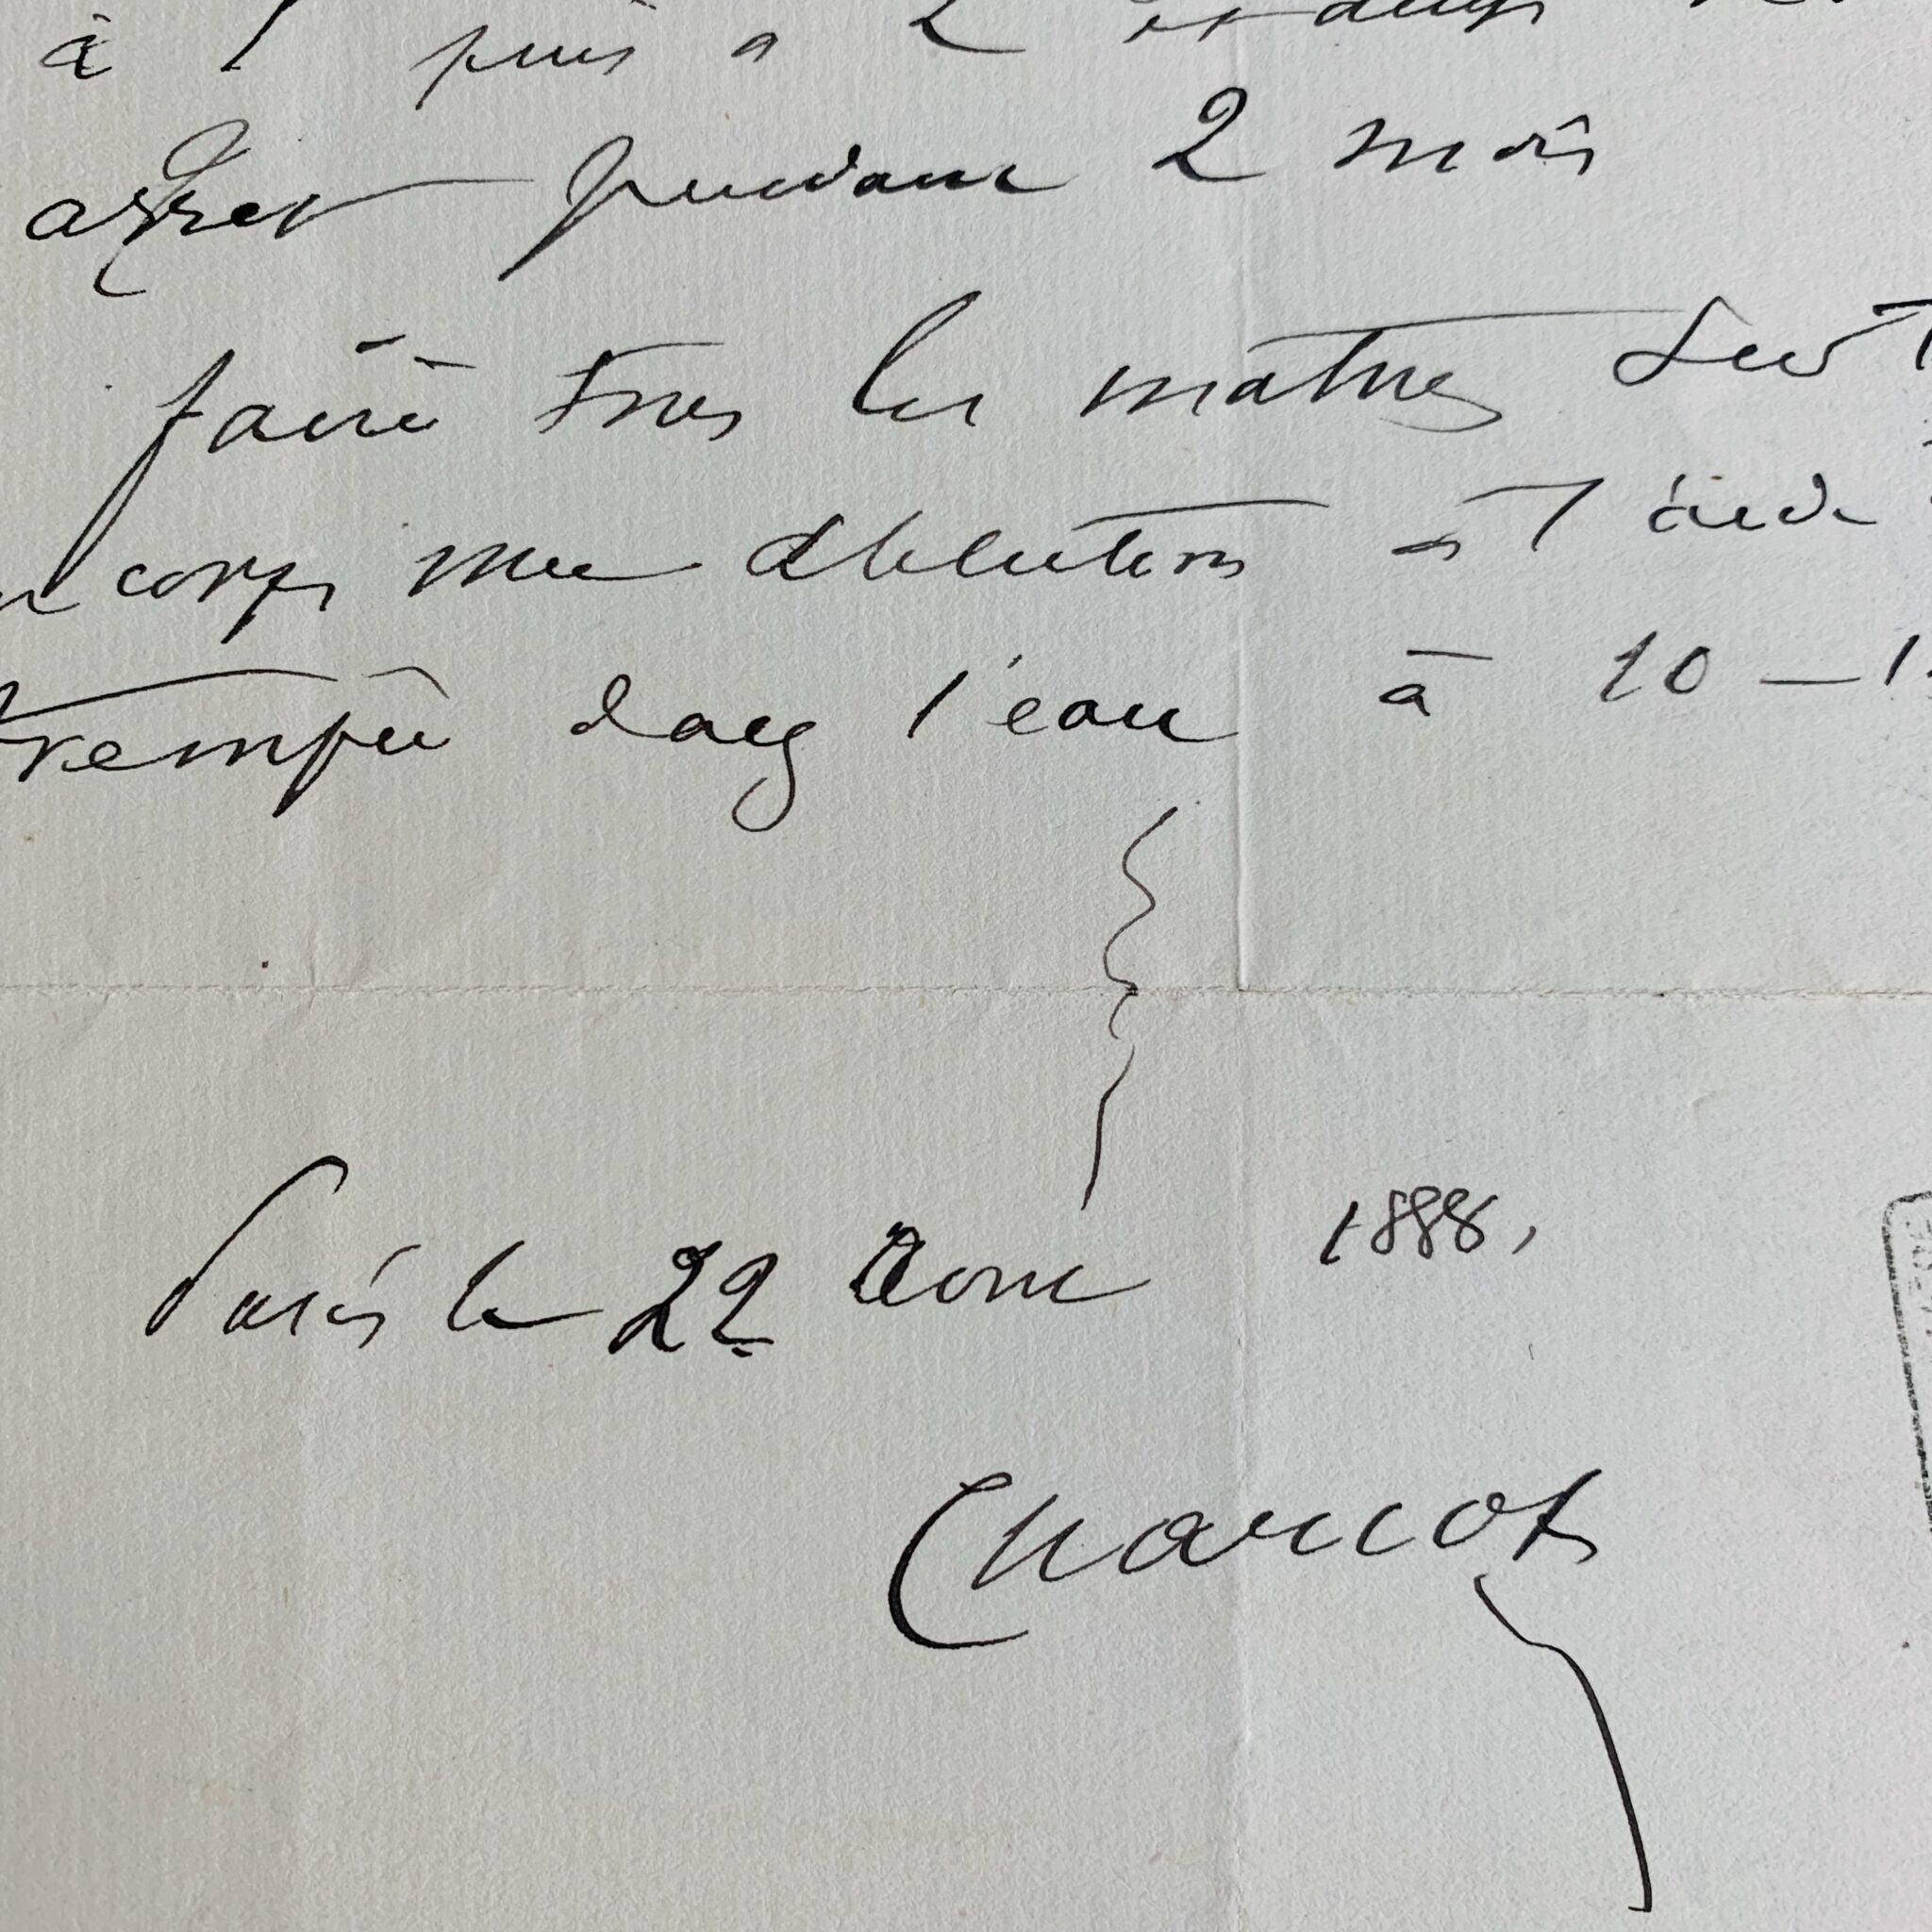 à 1 puis à 2 et
arret pendant 2 mois
faire tous les matins sur
corps une ablution à l'aide
trempée dans l'eau à 10 — 1
Paris le 22 Aout 1888,
Charcot